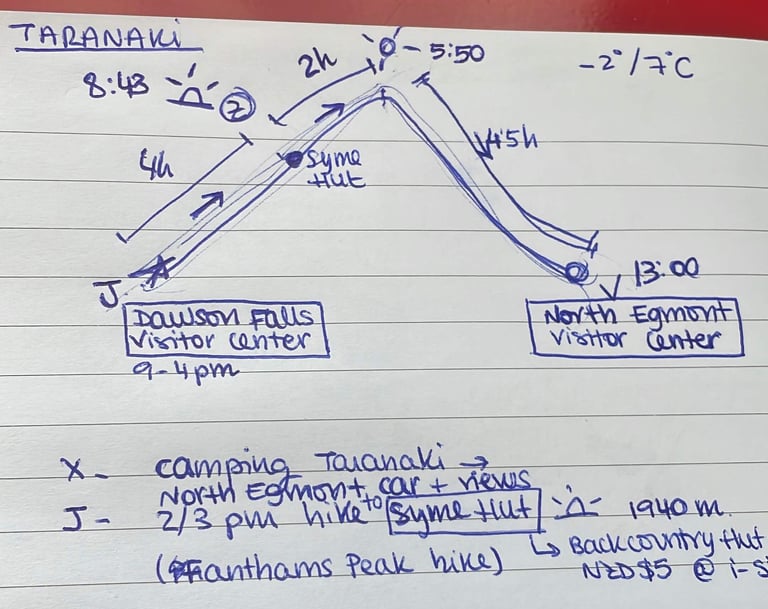 TARANAKI
8:43
Z
2h
5:50
-2°/7°C
4h
Syme
Hut
45h
J
Dawson Falls
Visitor Center
9-4pm
13:00
North Egmont
Visitor Center
X- camping Taranaki →
North Egmont car + views
J- 2/3 pm hike to Syme Hut 1940 m.
(Fanthams Peak hike) ↳ Backcountry Hut
NZD$5 @ i-S